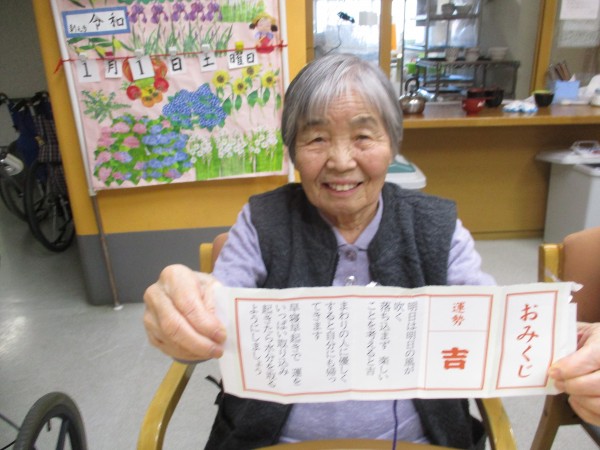 令和
1月1日土曜日
おみくじ
運勢
吉
明日は明日の風が
吹く
落ち込まず 楽しい
ことを考えると吉
まわりの人に優しく
すると自分にも帰っ
てきます
早寝早起きで 運を
いっぱい取り込み
起きたら水分を取る
ようにしましょう